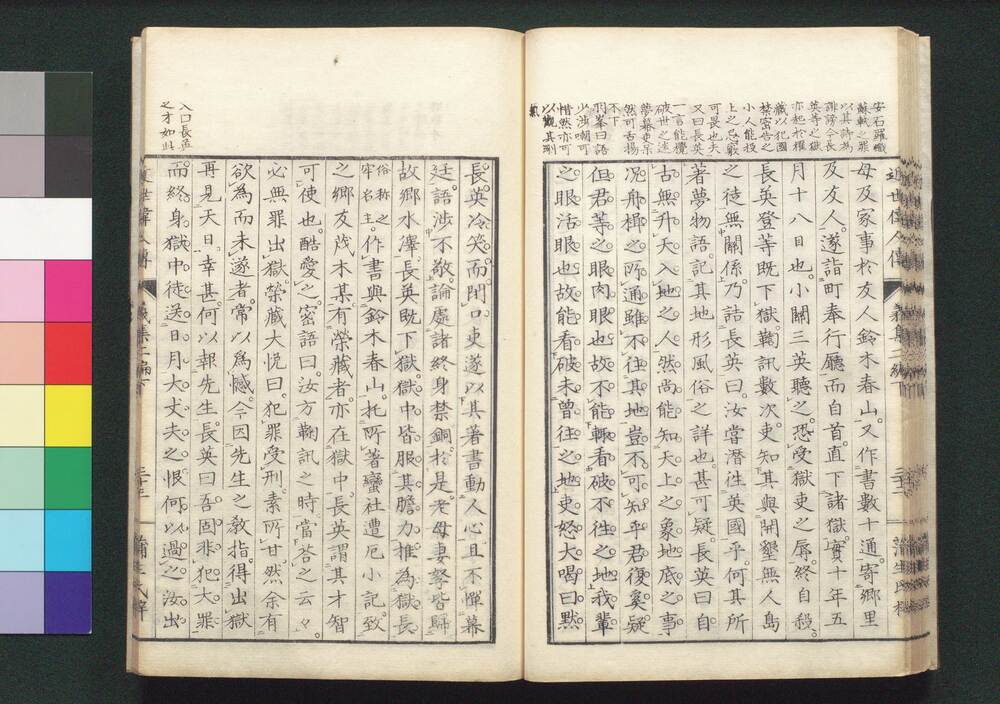 安石羅織
蘇軾之罪
以其詩為
誹謗令長
英等之獄
亦起於權
藏以犯國
禁密告之
小人能投
上之忌最
可畏也夫
又曰長英
一言能攪
破世之迷
夢幕吏
然可舌揚
不下
羽峯曰語
少渉嘲可
惜然亦可
以觀其剛
氣
母及家事於友人鈴木春山又作書數十通寄鄉里
及友人遂詣町奉行廳而自首直下諸獄實十年五
月十八日也小關三英聽之恐受獄吏之辱終自殺
長英登等既下獄鞫訊數次吏知其與開墾無人島
之徒無關係乃詰長英曰汝嘗潛往英國乎何其所
著夢物語記其地形風俗之詳也甚可疑長英曰自
古無升天入地之人然尚能知天上之象地底之事
況舟楫之所通雖不往其地豈不可知乎君復奚疑
但君等之眼肉眼也故不能輙看破不往之地我輩
之眼活眼也故能看破未曾往之地吏怒大喝曰默
長英冷笑而閉口吏遂以其著書動人心且不憚幕
廷語涉不敬論處諸終身禁錮於是老母妻拏皆歸
故鄉水澤長英既下獄獄中皆服其膽力推為獄長
俗稱之
牢名主
作書與鈴木春山托所著蠻社遭厄小記致
之鄉友茂木某有榮藏者亦在獄中長英謂其才智
可使也酷愛之密語曰汝方鞫訊之時當荅之云々
必無罪出獄榮藏大悅曰犯罪受刑素所甘然余有
欲為而未遂者常以為憾今因先生之教指得出獄
再見天日幸甚何以報先生長英曰吾固非犯大罪
而終身獄中徒送日月大丈夫之恨何以過之汝出
入口長英
之才如此